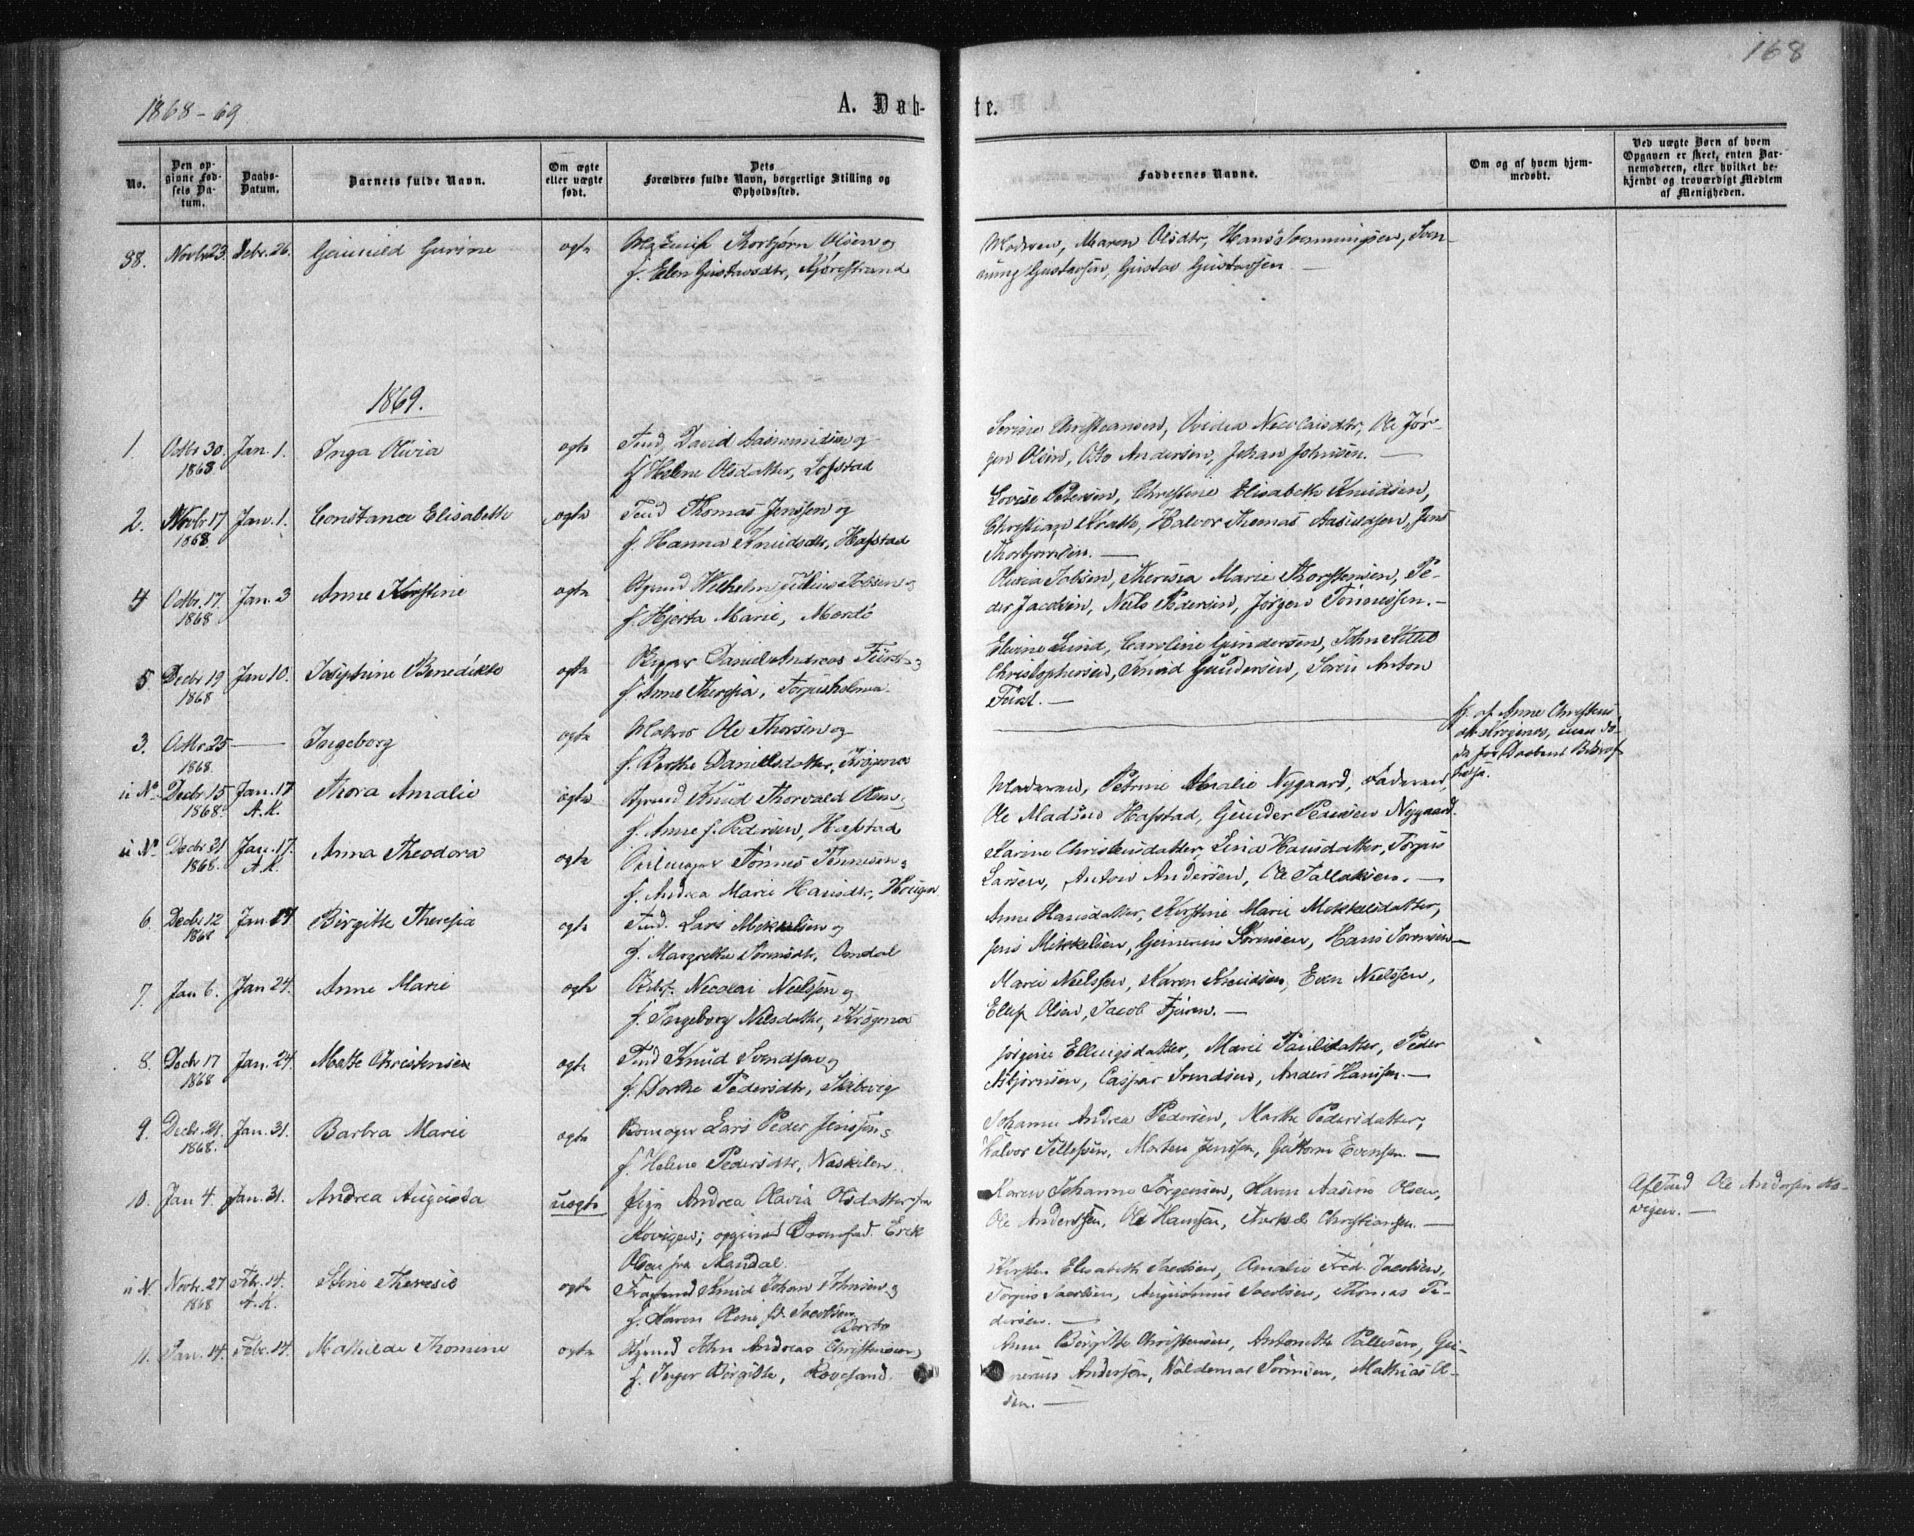 168
1868-69
A. Døb-
te.
No.
Den op-
givne Fød-
sels Da-
tum.
Daabs-
Datum.
Barnets fulde Navn.
Om ægte
eller uægte
født.
Dets
Forældres fulde Navn, borgerlige Stilling og
Opholdssted.
Faddernes Navne.
Om og af hvem hjem-
medøbt.
Ved uægte Børn af hvem
Opgaven er skeet, enten Bar-
nemoderen, eller hvilket be-
kjendt og troværdigt Medlem
af Menigheden.
38. Novbr. 23. Debr. 26. Gunild Gurine ægte Thorbjørn Olsen og
f. Elen Gustavsdtr,
Moderen, Maren Olsdtr, Hans Svenningsen, Sven-
ning Gustavsen, Gustav Gustavsen
1869.
1. Octbr. 30. 1868. Jan. 1. Inga Olivia ægte Tend. David Aasmundsen og
f. Helene Olsdatter, Lofstad
Serine Christiansen, Ovidia Nicolaisdtr, Ole Jør-
gen Olsen, Otto Andersen, Johan Johnsen.
2. Novbr. 17 1868. Jan. 1. Constance Elisabeth ægte Tend Thomas Jensen og
f. Hanna Knudsdtr, Hafstad
Lovise Petersen, Christine Elisabeth Knudsen,
Christian Krath, Halvor Thomas Aasuldsen, Jens
Thorbjørnsen.
4 Octbr. 17. 1868 Jan. 3 Anne Kirstine ægte Wilhelm Julius Jobsen og
f. Hjerta Marie, Merdø
Olivia Jobsen, Theresia Marie Thorstensen, Pe-
der Jacobsen, Niels Pedersen, Jørgen Tønnessen.
5 Decbr. 19 1868 Jan 10. Josephine Benedikte ægte Daniel Andreas Fürst og
f. Anne Theresia, Torjusholmen
Elevine Lund, Caroline Gundersen, John Kittel
Christophersen, Knud Gundersen, Søren Anton
Fürst.
3. Octbr. 25 1868. Ingeborg ægte Matros Ole Thorsen og
f. Berthe Danielsdatter,
af Anne Christens
u No. Decbr. 15 1868. Jan. 17 A.K. Thora Amalie ægte Knud Thorvald Olsen
f. Anne f. Pedersen, Hafstad
Moderen, Petrine Amalie Nygaard, Faderen,
Ole Madsen Hafstad, Gunder Pedersen Nygaard.
u No. Decbr. 21 1868. Jan. 17. A.K. Anna Theodora ægte Tønnes Tønnesen
f. Andrea Marie Hansdtr,
Karine Christensdatter, Lina Hansdatter, Torjus
Larsen, Anton Andersen, Ole Tallaksen.
6. Decbr. 12 1868 Jan. 17 Birgitte Theresia ægte Tend. Lars Mikkelsen og
f. Margrethe Sørensdtr, Omdal
Anne Hansdatter, Kirstine Marie Mikkelsdatter,
Jens Mikkelsen, Sørensen, Hans Sørensen
7. Jan 6. Jan 24. Anne Marie ægte Nicolai Nielssen og
f. Ingeborg Nilsdatter,
Marie Nielssen, Karen Knudsen, Even Nielssen,
Ellef Olsen, Jacob Fjæren.
8. Decbr. 17 1868 Jan. 24. Mette Christensen ægte Tend Knud Svendsen og
f. Dorthe Pedersdtr,
Jørgine Ellingsdatter, Marie Paulsdatter, Peder
Bjørnsen, Caspar Svendsen, Anders Hanssen.
9. Decbr. 21. 1868. Jan. 31. Barbra Marie ægte Lars Peder Jenssen
f. Helene Pedersdtr, Naskilen
Johanne Andrea Pedersen, Marthe Pedersdatter,
Halvor Tellefsen, Morten Jenssen, Guttorm Evensen.
10. Jan 4. Jan. 31. Andrea Augusta uægte Pige Andrea Olavia Olsdatter fra
Kovigen; opgiven Erik
Olsen fra Mandal.
Karen Johanne Jørgensen, Karen Aasine Olsen,
Ole Anderssen, Ole Hanssen, Christiansen.
Af Tend Ole Andersen Ko-
vigen.
u N. Novbr. 27 1868 Febr. 14. A.K. Stine Theresie ægte Knud Johan Johnsen og
f. Karen Oline f. Jacobsen
Kirsten Elisabeth Jacobsen, Amalie Fred. Jacobsen,
Torjus Jacobsen, Augustinus Jacobsen, Thomas Pe-
dersen.
11. Jan. 14. Febr. 14. Mathilde Thomine ægte John Andreas Christensen
f. Inger Birgitte, Revesand.
Anne Birgitte Christensen, Antonette Pallesen,
Andersen, Waldemar Sørensen, Mathias Ol-
sen.